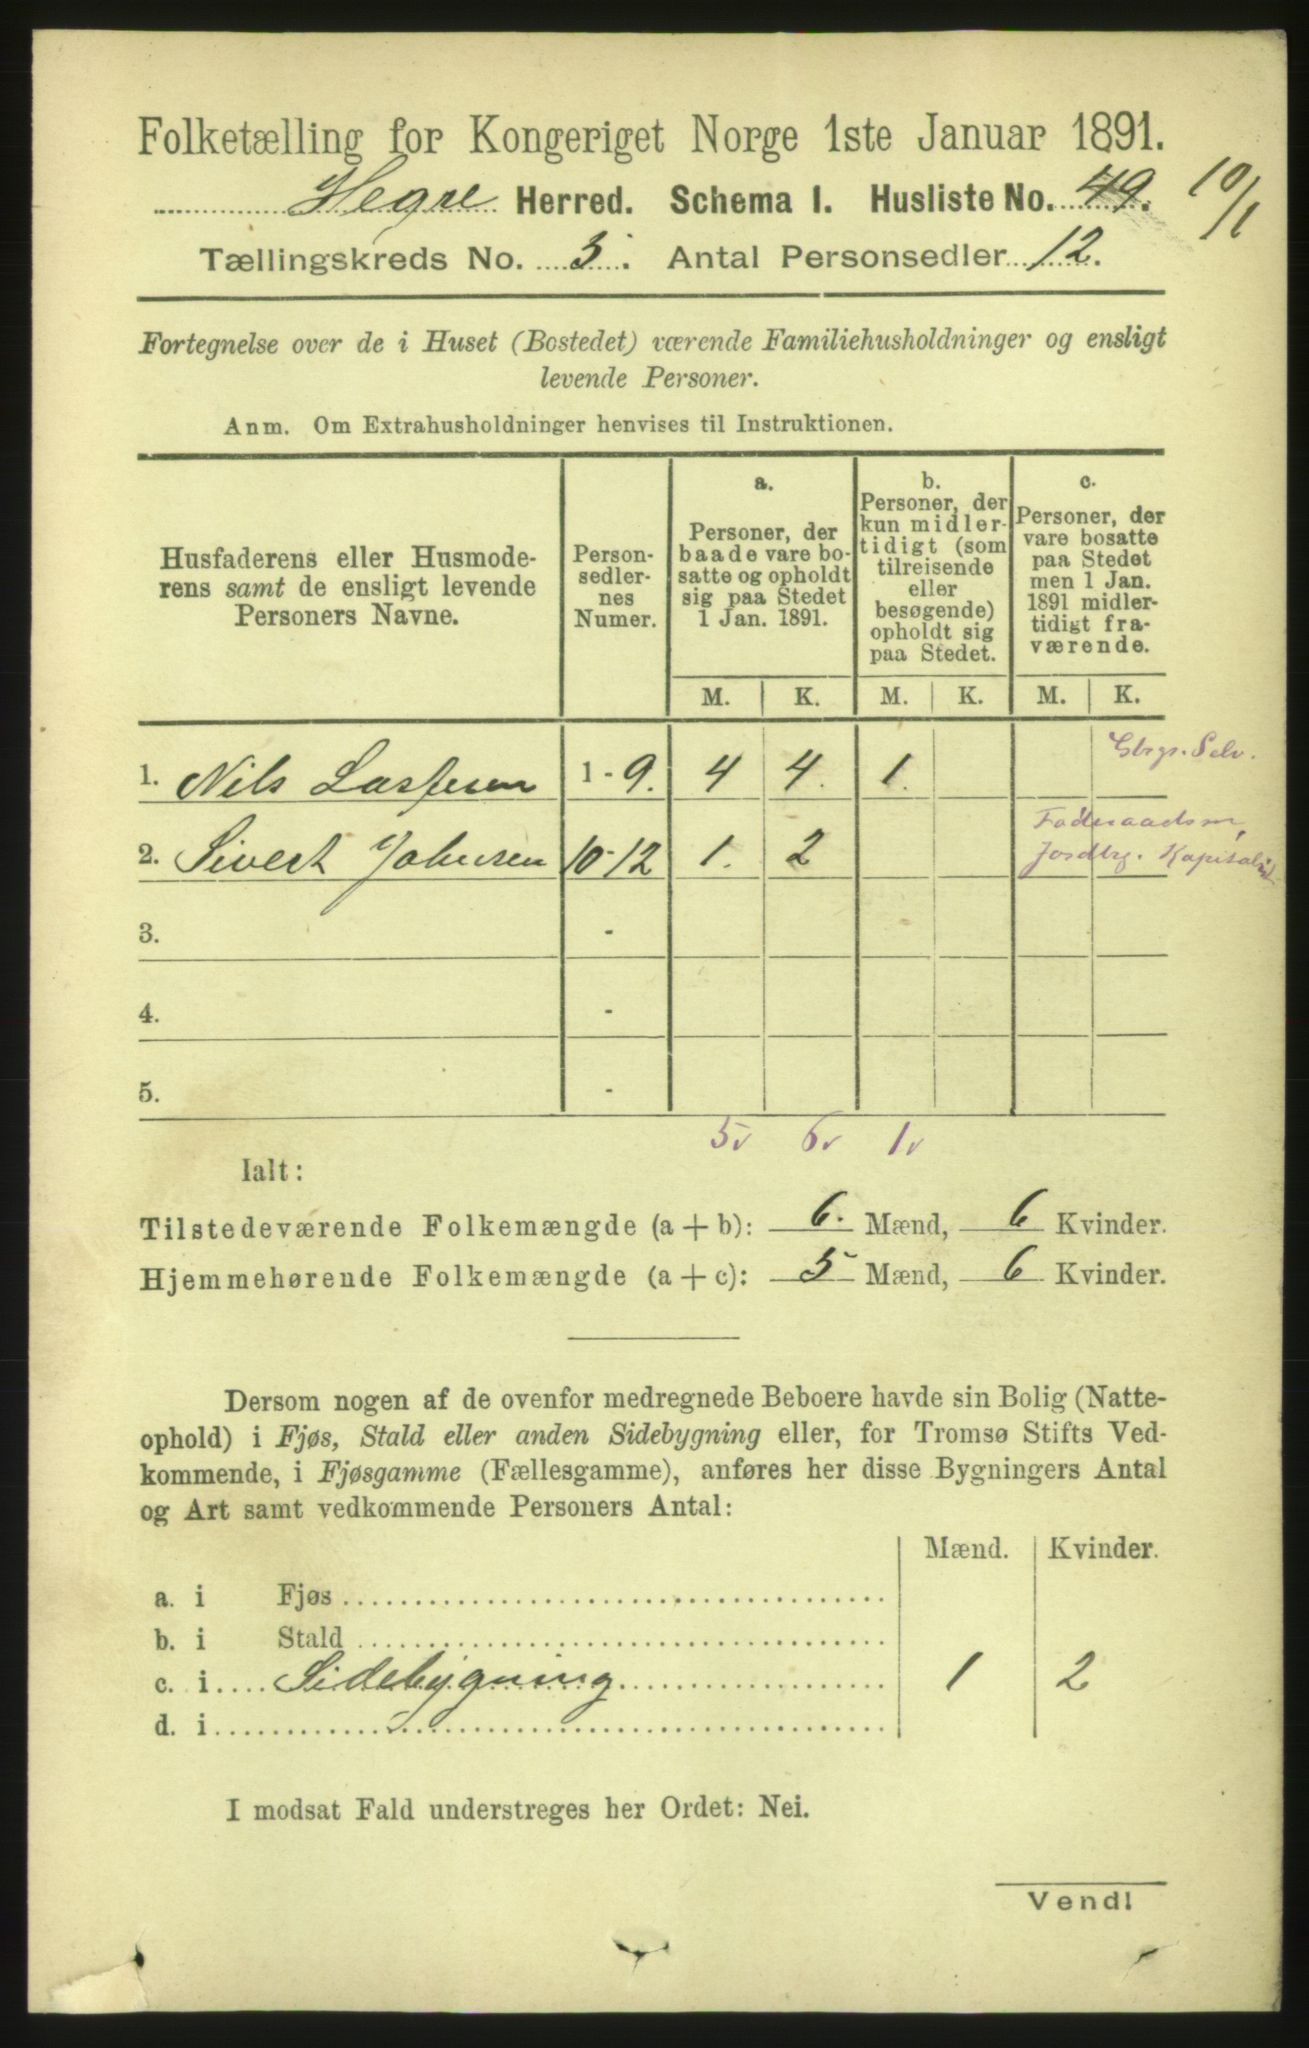 Folketælling for Kongeriget Norge 1ste Januar 1891.
Hegre Herred. Schema I. Husliste No. 49. 10/1
Tællingskreds No. 3. Antal Personsedler 12.
Fortegnelse over de i Huset (Bostedet) værende Familiehusholdninger og ensligt
levende Personer.
Anm. Om Extrahusholdninger henvises til Instruktionen.
Husfaderens eller Husmode-
rens samt de ensligt levende
Personers Navne.
Person-
sedler-
nes
Numer.
a.
Personer, der
baade vare bo-
satte og opholdt
sig paa Stedet
1 Jan. 1891.
b.
Personer, der
kun midler-
tidigt (som
tilreisende
eller
besøgende)
opholdt sig
paa Stedet.
c.
Personer, der
vare bosatte
paa Stedet
men 1 Jan.
1891 midler-
tidigt fra-
værende.
M. K. M. K. M. K.
Gbrgr. Selv.
1. Nils 1 - 9. 4 4. 1.
Føderaadsm,
2. Sivert Johnsen 10-12 1. 2 Jordbrg. Kapitalist
3. -
4. -
5. -
5v 6v 1v
Ialt:
Tilstedeværende Folkemængde (a + b): 6. Mænd, 6 Kvinder.
Hjemmehørende Folkemængde (a + c): 5 Mænd, 6 Kvinder.
Dersom nogen af de ovenfor medregnede Beboere havde sin Bolig (Natte-
ophold) i Fjøs, Stald eller anden Sidebygning eller, for Tromsø Stifts Ved-
kommende, i Fjøsgamme (Fællesgamme), anføres her disse Bygningers Antal
og Art samt vedkommende Personers Antal:
Mænd. Kvinder.
a. i Fjøs
b. i Stald
c. i Sidebygning 1 2
d. i
I modsat Fald understreges her Ordet: Nei.
Vend!